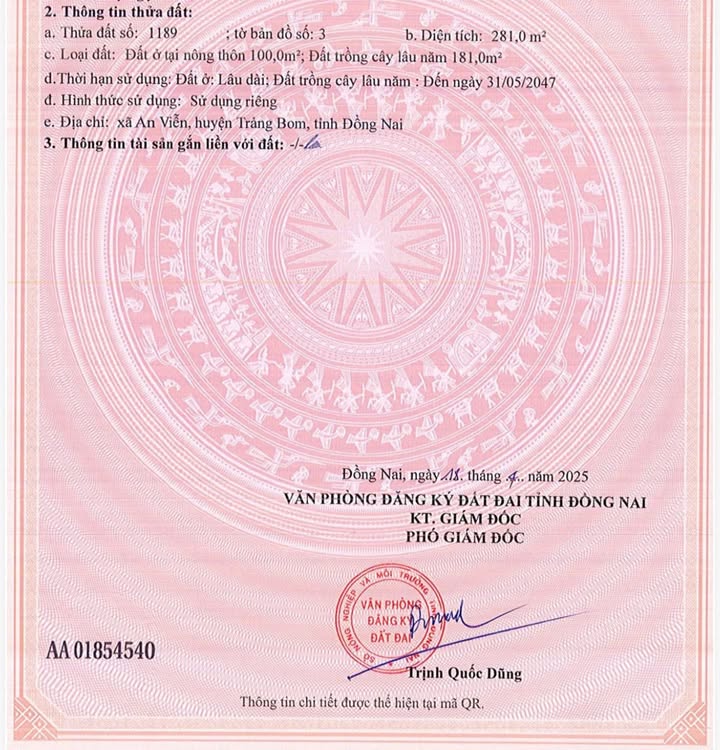 2. Thông tin thửa đất:
a. Thửa đất số: 1189 ; tờ bản đồ số: 3 b. Diện tích: 281,0 m²
c. Loại đất: Đất ở tại nông thôn 100,0m²; Đất trồng cây lâu năm 181,0m²
d.Thời hạn sử dụng: Đất ở: Lâu dài; Đất trồng cây lâu năm : Đến ngày 31/05/2047
đ. Hình thức sử dụng: Sử dụng riêng
e. Địa chỉ: xã An Viễn, huyện Trảng Bom, tỉnh Đồng Nai
3. Thông tin tài sản gắn liền với đất: -/-
Đồng Nai, ngày 18. tháng 4.. năm 2025
VĂN PHÒNG ĐĂNG KÝ ĐẤT ĐAI TỈNH ĐỒNG NAI
KT. GIÁM ĐỐC
PHÓ GIÁM ĐỐC
SỞ NÔNG NGHIỆP VÀ MÔI TRƯỜNG TỈNH ĐỒNG NAI
VĂN PHÒNG
ĐĂNG KÝ
ĐẤT ĐAI
AA 01854540
Trịnh Quốc Dũng
Thông tin chi tiết được thể hiện tại mã QR.